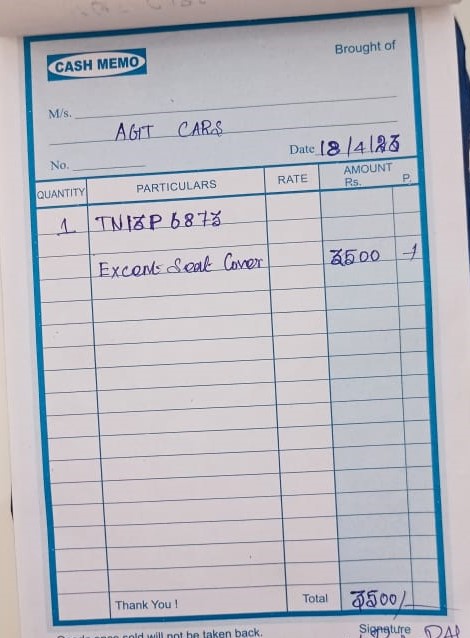 Brought of
CASH MEMO
M/s.
AGIT CARS
Date 18/4/23
No.
QUANTITY PARTICULARS RATE AMOUNT Rs. P.
1 TN13P 6873
Excent Seat Cover 3500 -/
Thank You ! Total 3500/-
once sold will not be taken back. Signature